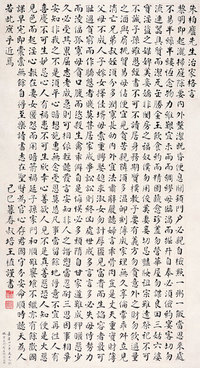 朱柏廬先生治家格言
黎明即起灑掃庭除要內外整潔既昏便息關鎖門戶必親自檢點一粥一飯當思來處
不易半絲半縷恆念物力維艱宜未雨而綢繆毋臨渴而掘井自奉必須儉約宴客切勿
流連器具質而潔瓦缶勝金玉飲食約而精園蔬愈珍饈勿營華屋勿謀良田三姑六婆
實淫盜之媒婢美妾嬌非閨房之福奴僕勿用俊美妻妾切忌豔妝祖宗雖遠祭祀不可
不誠子孫雖愚經書不可不讀居身務期質樸教子要有義方勿貪意外之財勿飲過量
之酒與肩挑貿易勿佔便宜見貧苦親鄰須多溫卹刻薄成家理無久享倫常乖舛立見消
亡兄弟叔姪須分多潤寡長幼內外宜法肅辭嚴聽婦言乖骨肉豈是丈夫重資財薄
父母不成人子嫁女擇佳婿毋索重聘娶媳求淑女毋計厚奩見富貴而生諂容者最可
恥遇貧窮而作驕態者賤莫甚居家戒爭訟訟則終凶處世戒多言言多必失毋恃勢力
而凌逼孤寡勿貪口腹而恣殺生禽乖僻自是悔誤必多頹惰自甘家道難成狎暱惡少
久必受其累屈志老成急則可相依輕聽發言安知非人之譖愬當忍耐三思因事相爭
安知非我之不是須平心再想施惠勿念受恩莫忘凡事當留餘地得意不宜再往人有
喜慶不可生妒忌心人有禍患不可生喜幸心善欲人見不是真善惡恐人知便是大惡
見色而起淫心報在妻女匿怨而用暗箭禍延子孫家門和順雖饔飧不繼亦有餘歡國
課早完即囊橐無餘自得至樂讀書志在聖賢為官心存君國守分安命順時聽天為人
若此庶乎近焉
謹書